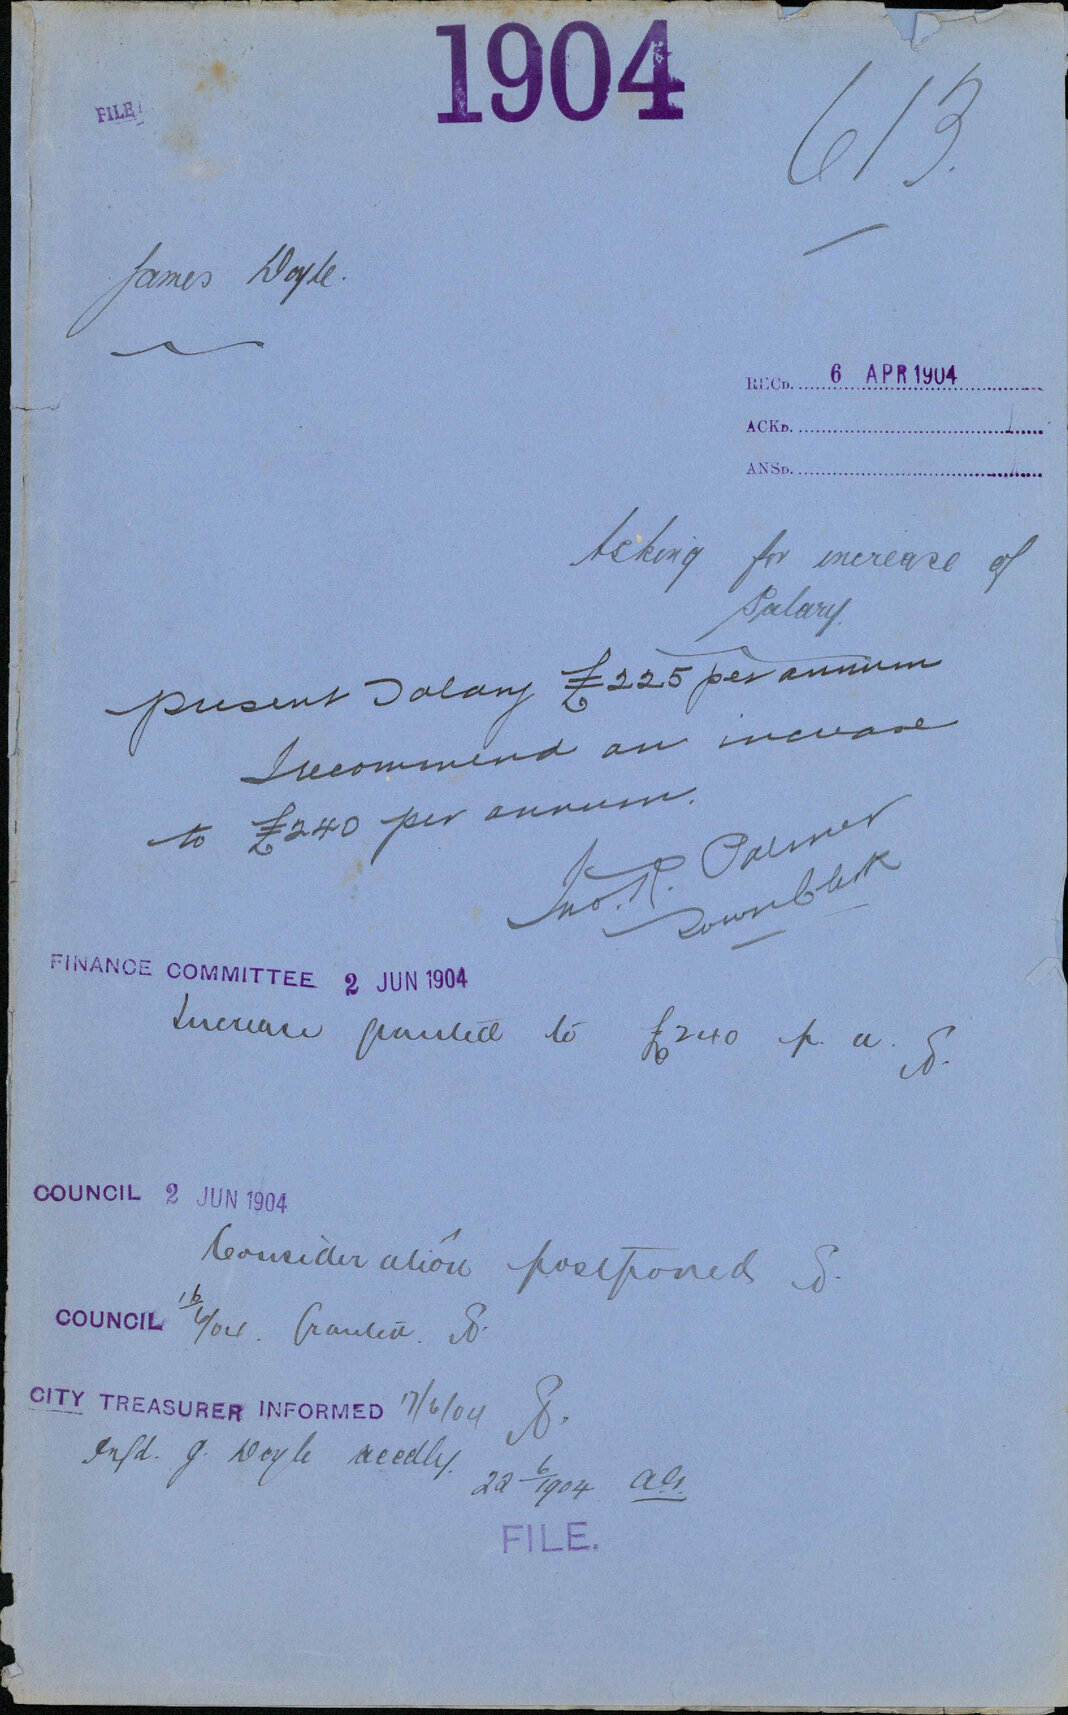 1904
FILE
613.
James Doyle.
RECD. 6 APR 1904
ACKD.
ANSD.
Asking for increase of
Salary.
Present Salary £225 per annum
I recommend an increase
to £240 per annum.
Jno. R. Palmer
Town Clerk
FINANCE COMMITTEE 2 JUN 1904
Increase granted to £240 p. a.
COUNCIL 2 JUN 1904
Consideration postponed
COUNCIL 16/6/04. Granted.
CITY TREASURER INFORMED 17/6/04
Infd. J. Doyle accdly.
22/6/1904
FILE.